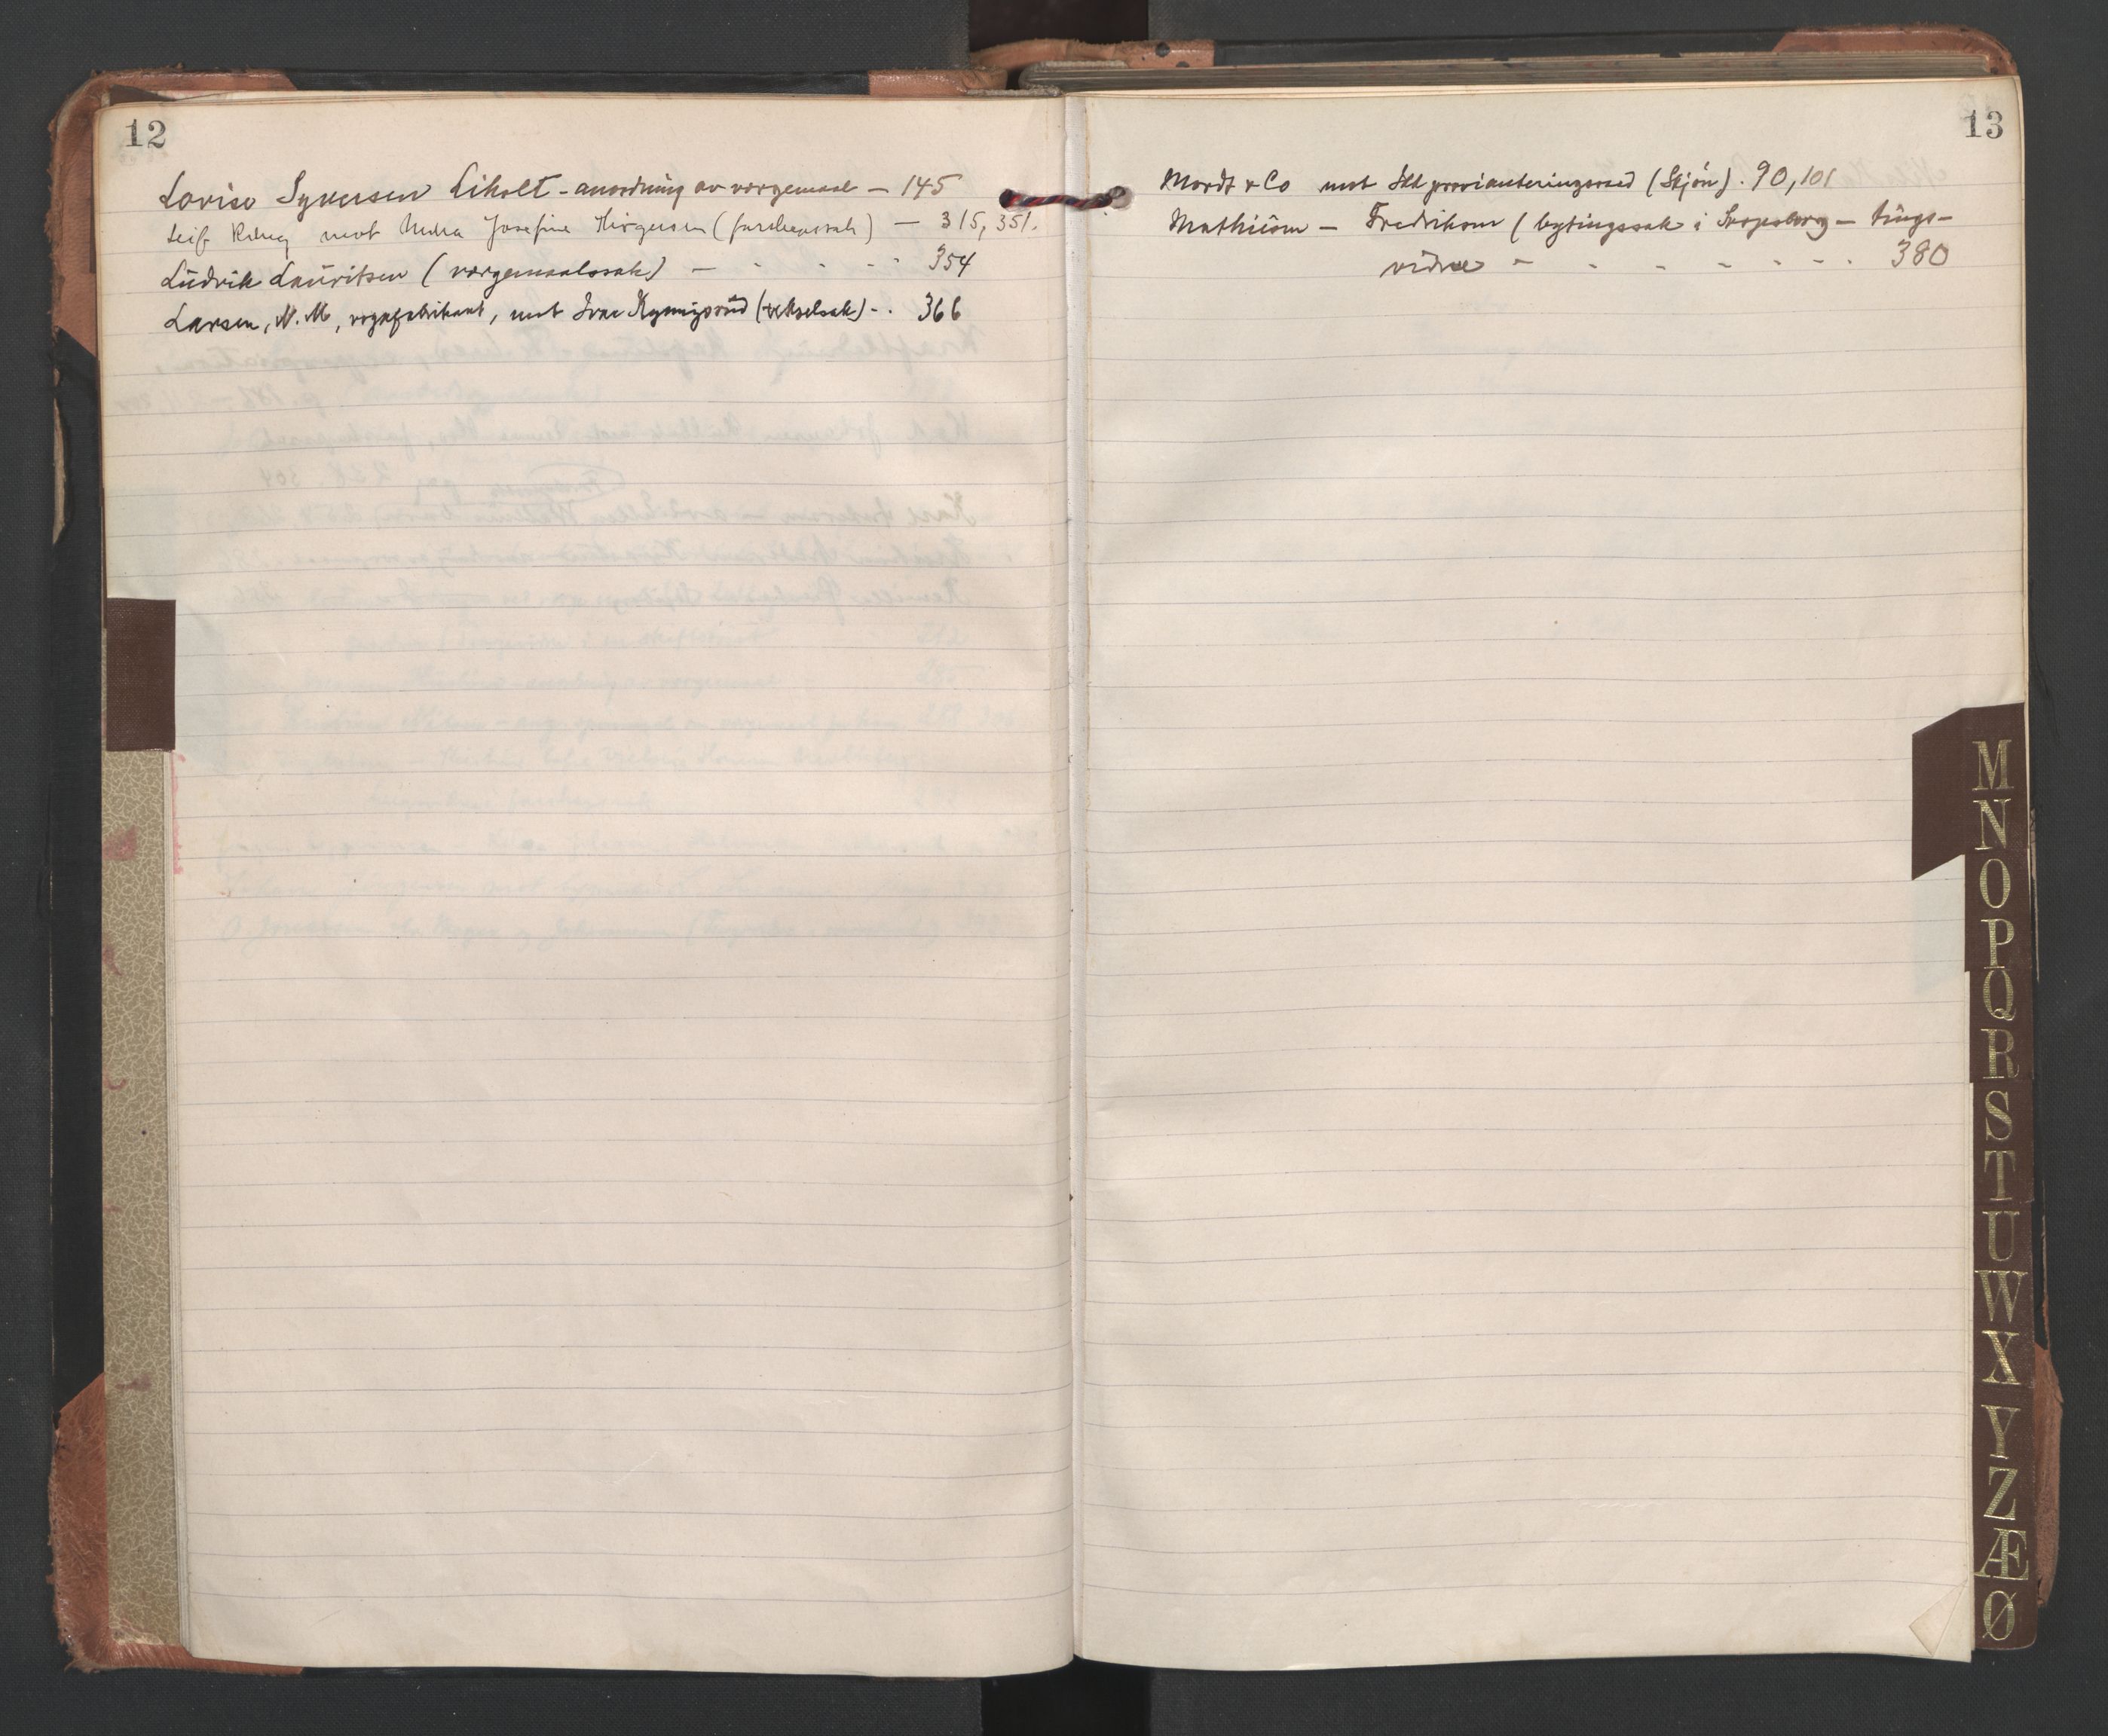 12
Lovise Syversen Liholt - anordning av vergemaal — 145
Leif mot Josefine (farskapssak) — 315, 351.
Ludvik Lauritsen (værgemaalssak) — - - - - 354
Larsen, N. M, vognfabrikant, mot Ivar (vekselsak) - . 366
13
Mordt & Co mot provianteringsraad (Skjøn) . 90, 101
Mathisen — Fredriksen (bytingssak i Sarpsborg — tings-
vidne - - - - - - . . 380
M
N
O
P
Q
R
S
T
U
W
X
Y
Z
Æ
Ø